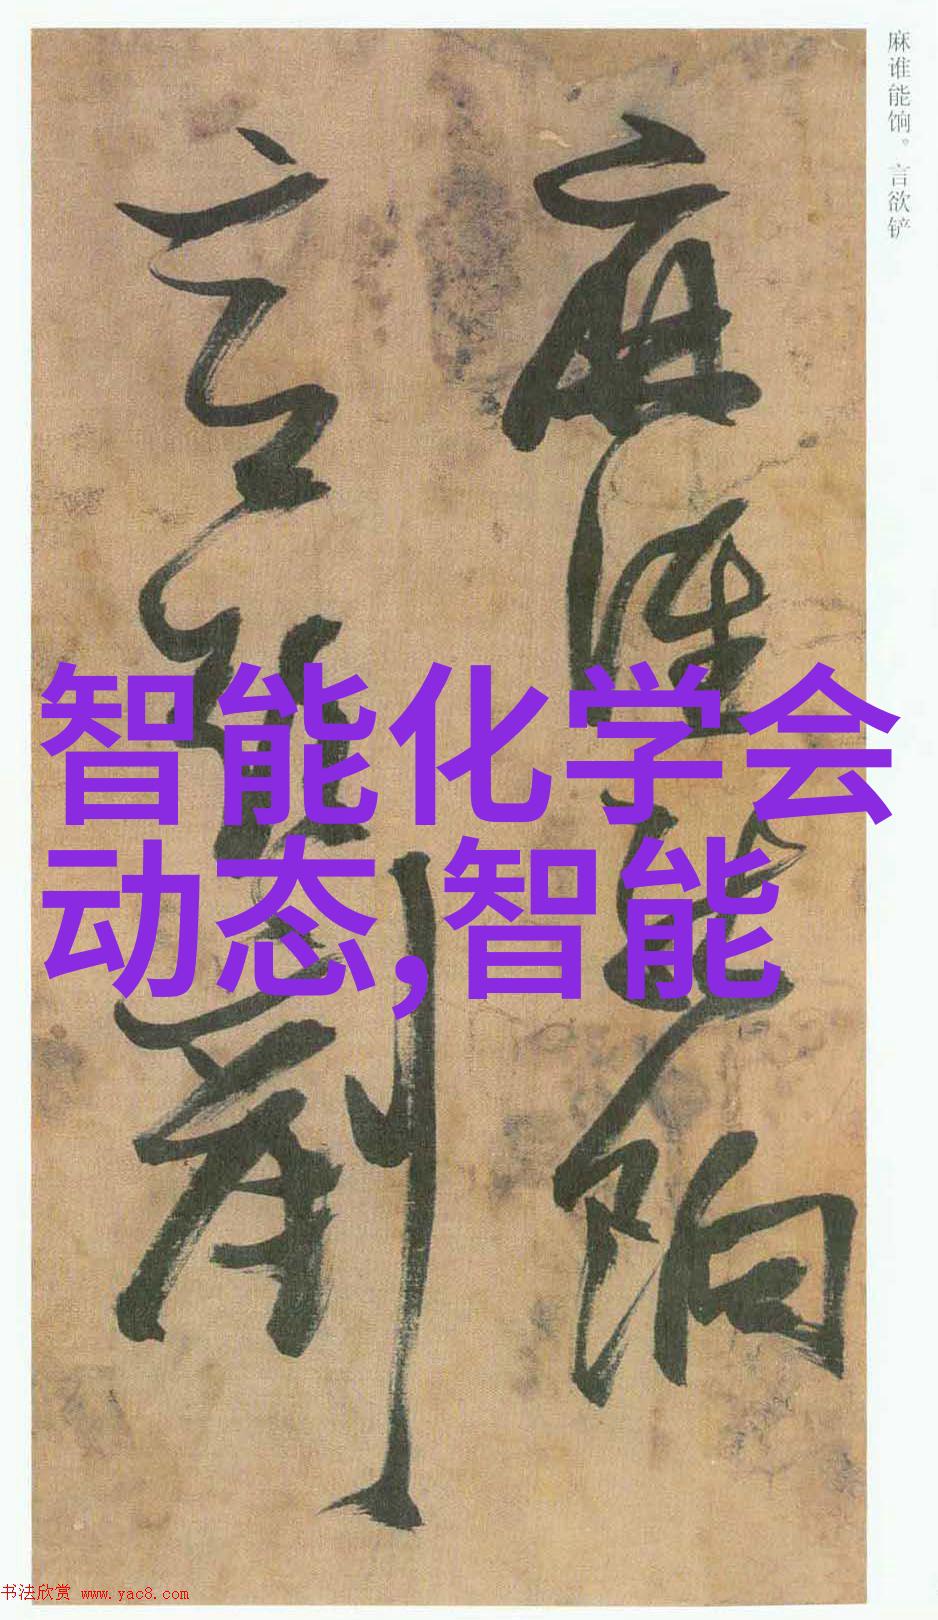 麻谁能饷。言欲铲
麻谁能饷
言欲剗
智能化学会
动态,智能
书法欣赏 www.yac8.com